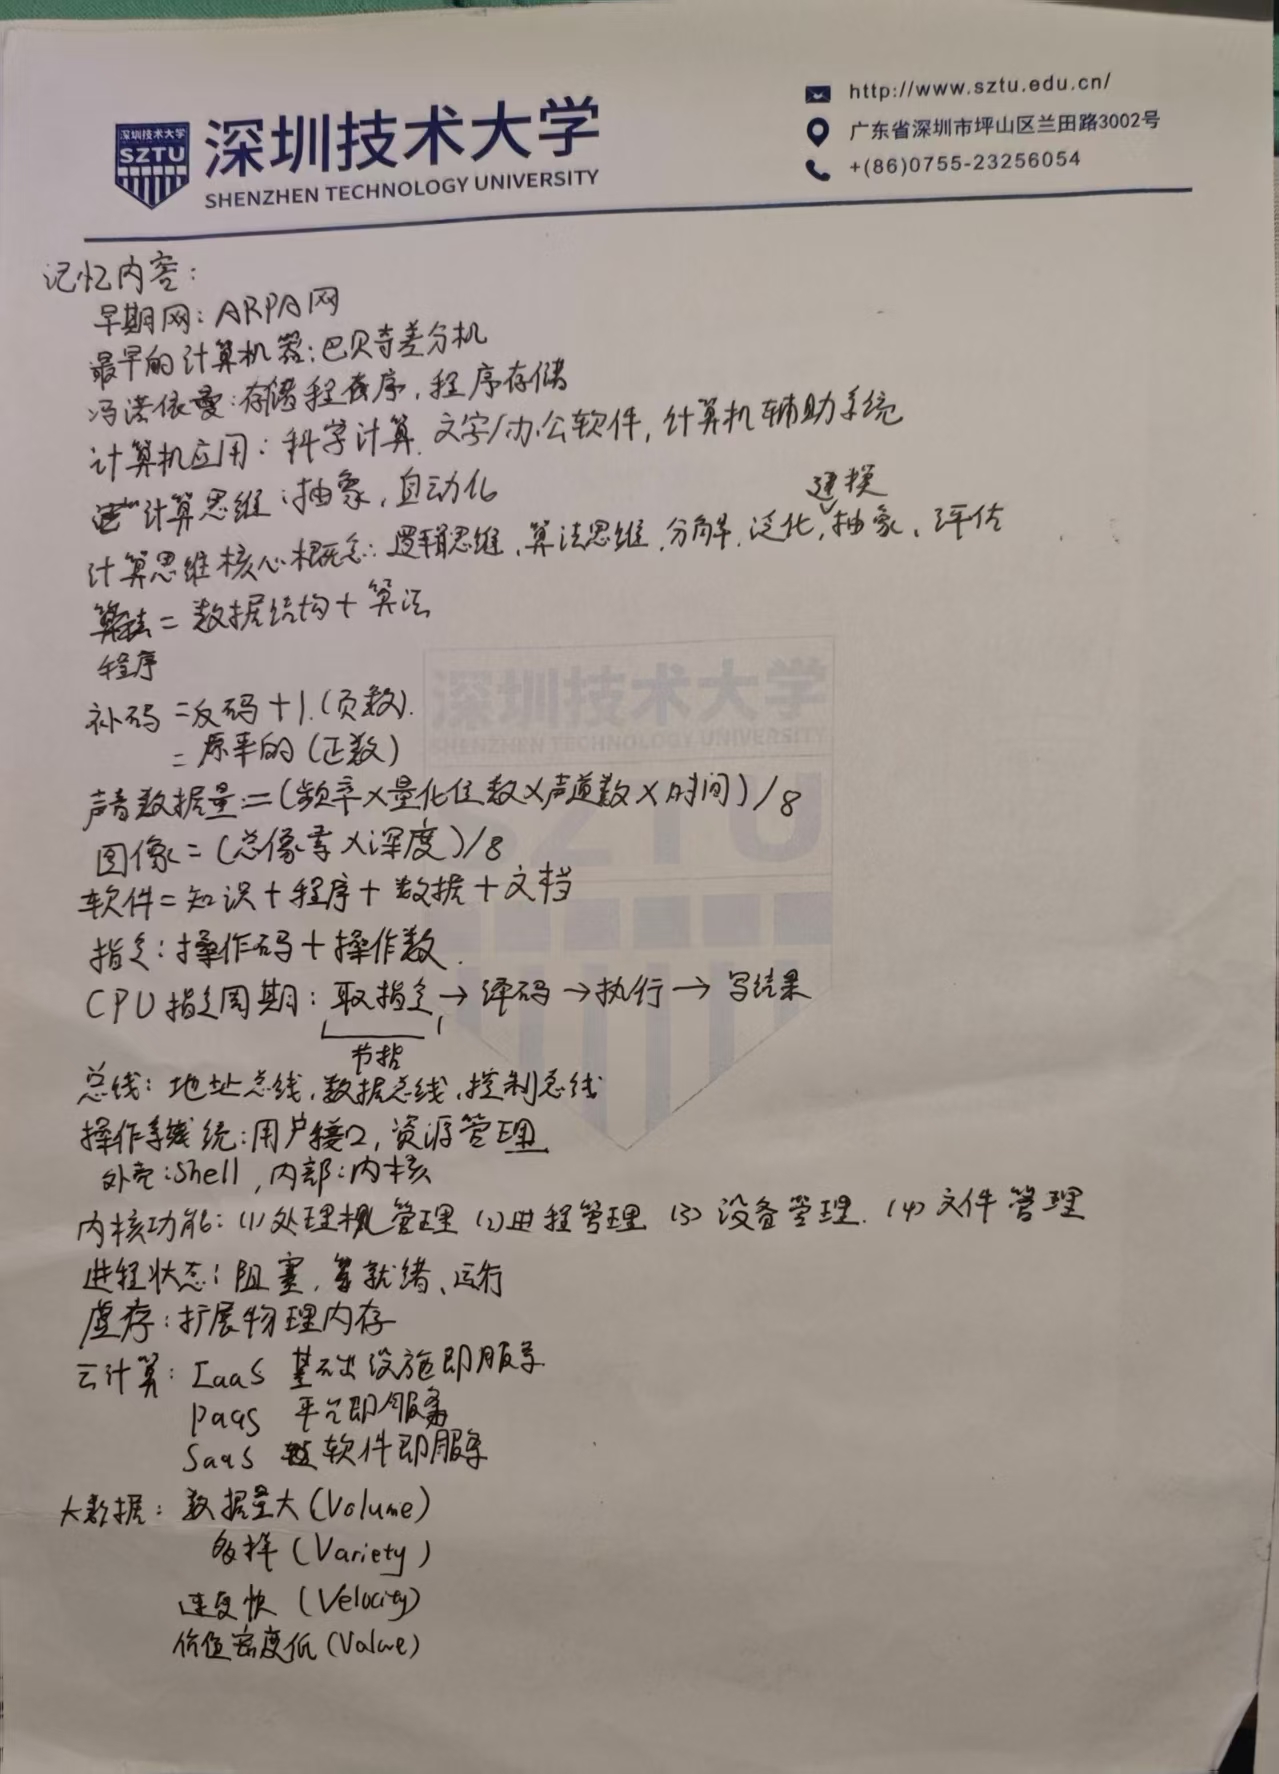 深圳技术大学
SZTU
深圳技术大学
SHENZHEN TECHNOLOGY UNIVERSITY
http://www.sztu.edu.cn/
广东省深圳市坪山区兰田路3002号
+(86)0755-23256054
记忆内容：
早期网：ARPA网
最早的计算机器：巴贝奇差分机
冯诺依曼：存储程序，程序存储
计算机应用：科学计算，文字/办公软件，计算机辅助系统
计算思维：抽象，自动化
建模
计算思维核心概念：逻辑思维，算法思维，分解，泛化，抽象，评估
= 数据结构+算法
程序
补码 =反码+1.(负数).
= 原来的(正数)
声音数据量：=(频率×量化位数×声道数×时间)/8
图像=(总像素×深度)/8
软件=知识+程序+数据+文档
指令：操作码+操作数.
CPU指令周期：取指令→译码→执行→写结果
总线：地址总线，数据总线，控制总线
操作系统：用户接口，资源管理
外壳：Shell，内部：内核
内核功能：(1)处理机管理 (2)进程管理 (3)设备管理. (4)文件管理
进程状态：阻塞，就绪、运行
虚存：扩展物理内存
云计算：IaaS 基础设施即服务
PaaS 平台即服务
SaaS 软件即服务
大数据：数据量大(Volume)
多样(Variety)
速度快(Velocity)
价值密度低(Value)
深圳技术大学
SHENZHEN TECHNOLOGY UNIVERSITY
SZTU